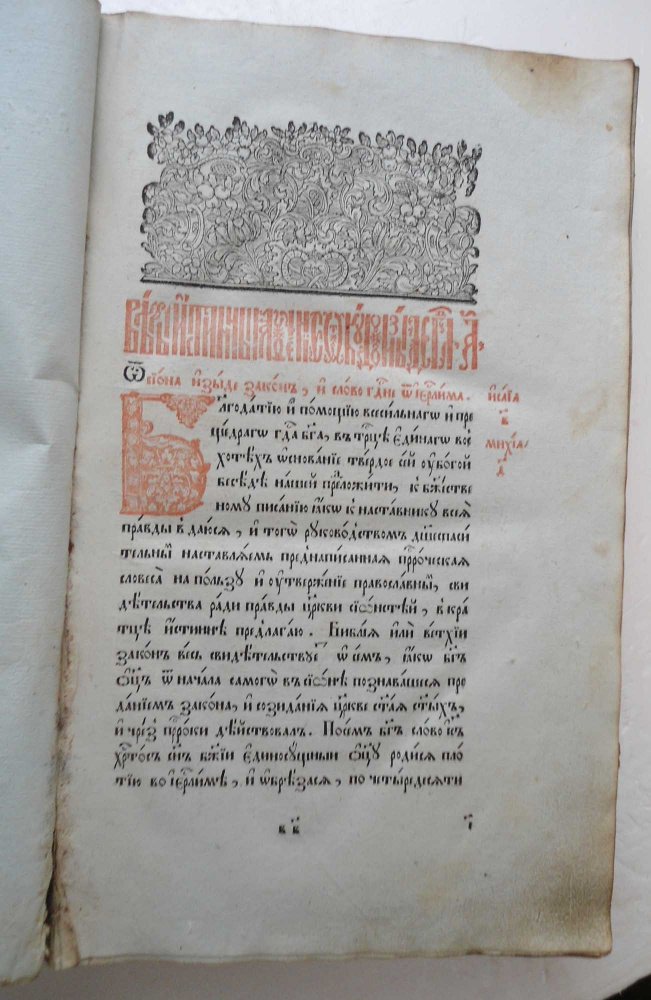 Ѿсїѡна и҆зы́де зако́нъ, и҆ сло́во гдⷭ҇не ѿ і҆ерⷭ҇ли́ма.
и҆са́їа
в҃
михїа́,
д҃
Благода́тїю и҆ по́мощїю всеси́льнагѡ и҆ пре
ще́драгѡ гдⷭ҇а бг҃а, въ трⷪ҇цѣ є҆ди́нагѡ вос
хотѣ́хъ ѡ҆снова́нїе тве́рдое се́й ᲂу҆бо́гой
бесѣ́дѣ на́шей преⷣложи́ти, к҆ бж҃е́стве
ному писа́нїю ꙗ҆́кѡ к҆ наста́внику всеѧ̀
пра́вды в҆даю́сѧ, и҆ тогѡ̀ руково́дствомъ дш҃еспаси́
тельныⷨ наставлѧ́емь преднапи́санная прⷪ҇ро́ческая
словеса̀ на по́льзу и҆ ᲂу҆твержде́нїе правосла́вныⷨ, сви
дѣ́тельства ра́ди пра́вды цр҃кви сїѡ́нстѣй, в҆кра́
тцѣ и҆́стиннѣ предлага́ю. Би́блїа и҆лѝ ве́тхїи
зако́нъ ве́сь свидѣ́тельствуеⷮ ѡ҆ се́мъ, ꙗ҆́кѡ бг҃ъ
ѻ҆ц҃ъ ѿ нача́ла самогѡ̀ въ сїѡ́нѣ познава́шесѧ пре
да́нїемъ зако́на, и҆ созида́нїѧ цр҃кве ст҃а́ѧ ст҃ы́хъ,
и҆ чре́з̾ прⷪ҇ро́ки дѣ́йствовалъ. По се́мъ бг҃ъ сло́во і҆и҃съ
хрⷭ҇то́съ сн҃ъ бж҃їи є҆диносу́щныи ѻ҆ц҃у роди́сѧ пло́
тїю во і҆ерⷭ҇ли́мѣ, и҆ ѡ҆брѣ́засѧ, по четы́редесѧти